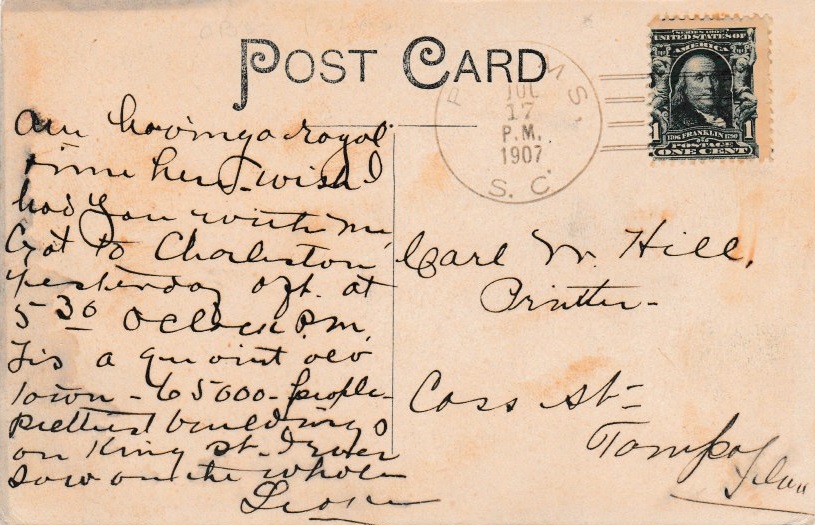 POST CARD
P MS.
JUL
17
P.M.
1907
S. C.
SERIES 1902
UNITED STATES OF
AMERICA
1 1706 FRANKLIN 1790 1
POSTAGE
ONE CENT
Am having a royal
time here - wish I
had you with me,
Got to Charleston
yesterday aft. at
5 30 O Clock P.M.
Tis a quaint old
town - 65000 - people -
prettiest buildings
on King st. I ever
saw on the whole
Carl W. Hill,
Printer -
Cass St =
Tampa
Fla